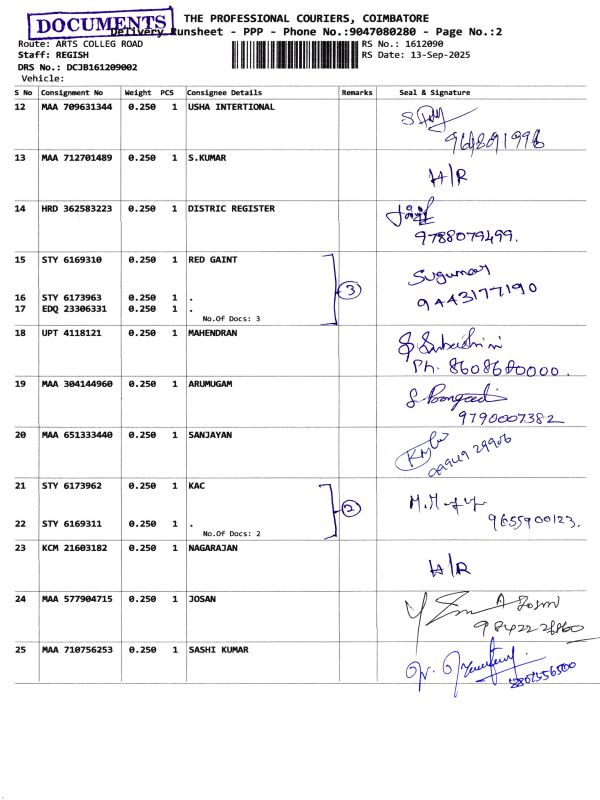 DOCUMENTS
THE PROFESSIONAL COURIERS, COIMBATORE
Delivery Runsheet - PPP - Phone No.:9047080280 - Page No.:2
Route: ARTS COLLEG ROAD RS No.: 1612090
Staff: REGISH RS Date: 13-Sep-2025
DRS No.: DCJB161209002
Vehicle:
S No Consignment No Weight PCS Consignee Details Remarks Seal & Signature
12 MAA 709631344 0.250 1 USHA INTERTIONAL
13 MAA 712701489 0.250 1 S.KUMAR
H/R
14 HRD 362583223 0.250 1 DISTRIC REGISTER
9788079499.
15 STY 6169310 0.250 1 RED GAINT
Sugumar
3
9443177190
16 STY 6173963 0.250 1 .
17 EDQ 23306331 0.250 1 .
No.Of Docs: 3
18 UPT 4118121 0.250 1 MAHENDRAN
Ph. 8608680000.
19 MAA 304144960 0.250 1 ARUMUGAM
9790007382
20 MAA 651333440 0.250 1 SANJAYAN
21 STY 6173962 0.250 1 KAC
2
9655900123.
22 STY 6169311 0.250 1 .
No.Of Docs: 2
23 KCM 21603182 0.250 1 NAGARAJAN
H/R
24 MAA 577904715 0.250 1 JOSAN
25 MAA 710756253 0.250 1 SASHI KUMAR